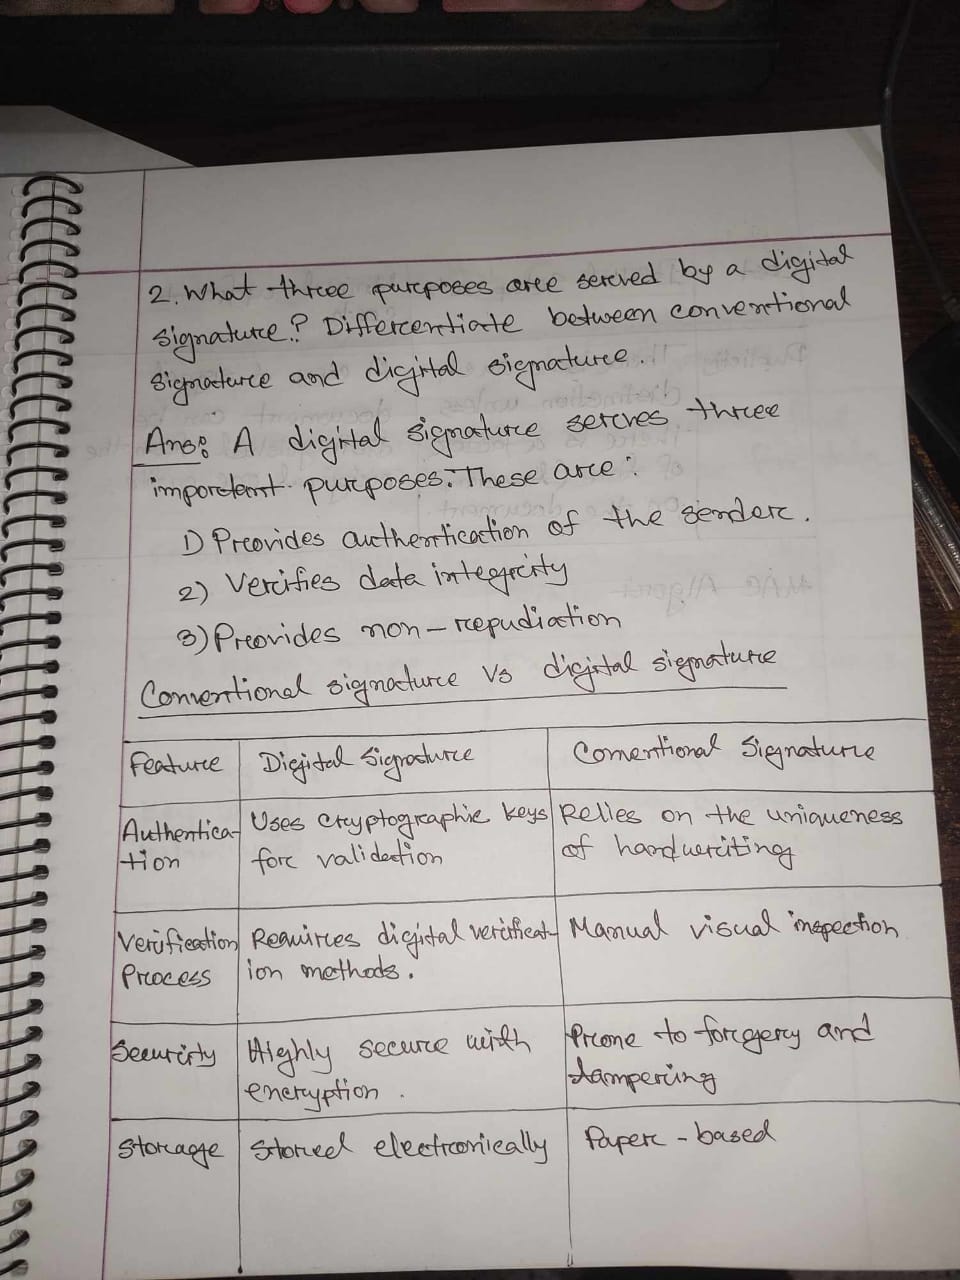 2. What three purposes are served by a digital
signature? Differentiate between conventional
signature and digital signature.
Ans: A digital signature serves three
important purposes. These are:
1) Provides authentication of the sender.
2) Verifies data integrity
3) Provides non-repudiation
Conventional signature Vs digital signature
Feature Digital Signature Conventional Signature
Authentica- Uses cryptographic keys Relies on the uniqueness
tion for validation of handwriting
Verification Requires digital verificat- Manual visual inspection
Process ion methods.
Security Highly secure with Prone to forgery and
encryption. tampering
Storage Stored electronically Paper-based